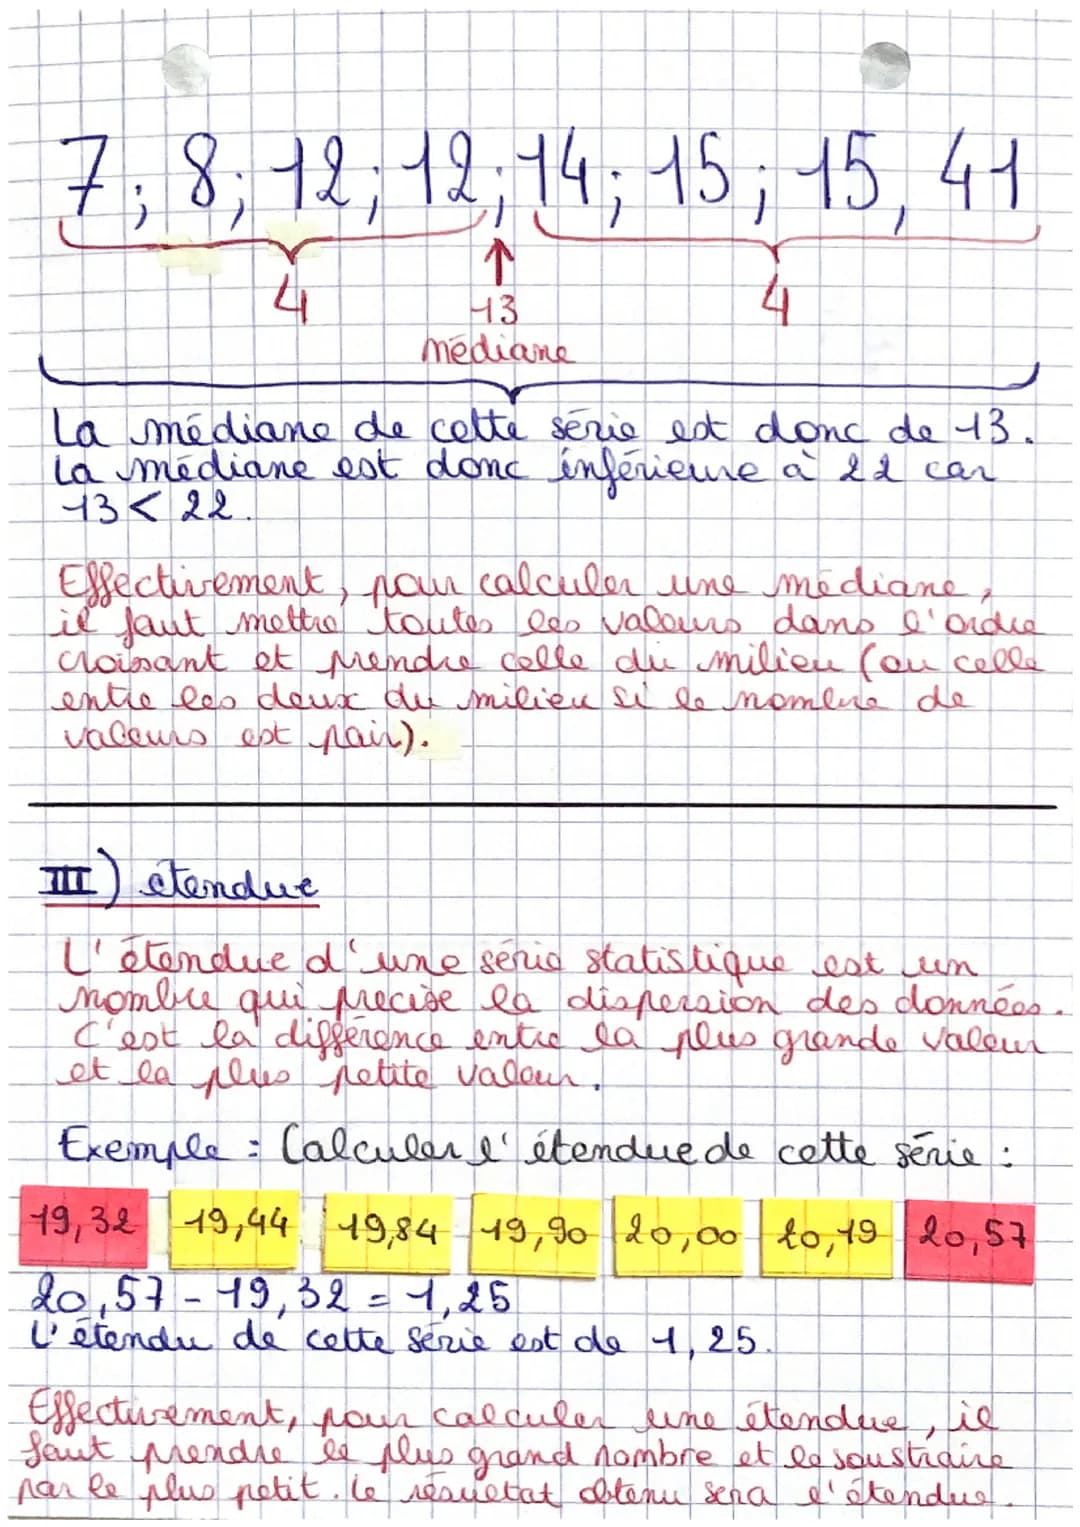 7 ; 8 ; 12 ; 12 ; 14 ; 15 ; 15, 41
4 13 4
médiane
La médiane de cette série est donc de 13.
La médiane est donc inférieure à 22 car
13 < 22.
Effectivement, pour calculer une médiane,
il faut mettre toutes les valeurs dans l'ordre
croissant et prendre celle du milieu (ou celle
entre les deux du milieu si le nombre de
valeurs est pair).
III) étendue
L'étendue d'une série statistique est un
nombre qui précise la dispersion des données.
C'est la différence entre la plus grande valeur
et la plus petite valeur.
Exemple : Calculer l'étendue de cette série :
19,32 19,44 19,84 19,90 20,00 20,19 20,57
20,57 - 19,32 = 1,25
L'étendu de cette série est de 1,25.
Effectivement, pour calculer une étendue, il
faut prendre le plus grand nombre et le soustraire
par le plus petit. Le résultat obtenu sera l'étendue.